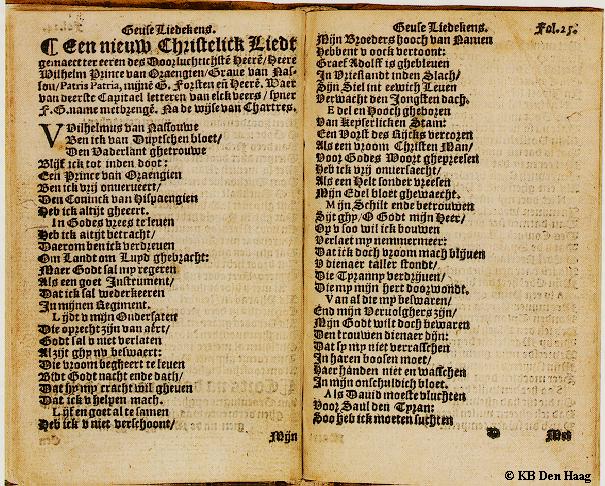 Geuse Liedekens.
¶ Een nieuw Christelick Liedt
gemaect ter eeren des Doorluchtichstē Heerē/ Heere
Wilhelm Prince van Oraengien/ Graue van Nas-
sou/ Patris Patriæ, mijnē G. Forsten eñ Heerē. Waer
van deerste Capitael letteren van elck veers/ syner
F. G. name metbrengē. Na de wijse van Chartres.
VVilhelmus van Nassouwe
Ben ick van Duytschen bloet/
Den Vaderlant ghetrouwe
Blijf ick tot inden doot:
Een Prince van Oraengien
Ben ick vrij onuerveert/
Den Coninck van Hispaengien
Heb ick altijt gheeert.
In Godes vrees te leuen
Heb ick altijt betracht/
Daerom ben ick verdreuen
Om Landt om Luyd ghebracht:
Maer Godt sal my regeren
Als een goet Instrument/
Dat ick sal wederkeeren
In mijnen Regiment.
Lydt v mijn Ondersaten
Die oprecht zijn van aert/
Godt sal v niet verlaten
Al zijt ghy nv beswaert:
Die vroom begheert te leuen
Bidt Godt nacht ende dach/
Dat hy my cracht wil gheuen
Dat ick v helpen mach.
Lijf en goet al te samen
Heb ick v niet verschoont/
Mijn
Geuse Liedekens. Fol.25.
Mijn Broeders hooch van Namen
Hebbent v oock vertoont:
Graef Adolff is ghebleuen
In Vrieslandt inden Slach/
Sijn Siel int eewich Leuen
Verwacht den Jongsten dach.
Edel en Hooch gheboren
Van Keyserlicken Stam:
Een Vorst des Rijcks vercoren
Als een vroom Christen Man/
Voor Godes Woort ghepreesen
Heb ick vrij onuersaecht/
Als een Helt sonder vreesen
Mijn Edel bloet ghewaecht.
Mijn Schilt ende betrouwen
Sijt ghy/ O Godt mijn Heer/
Op v soo wil ick bouwen
Verlaet my nemmermeer:
Dat ick doch vroom mach blijuen
V dienaer taller stondt/
Die Tyranny verdrijuen/
Die my mijn hert doorwondt.
Van al die my beswaren/
End mijn Veruolghers zijn/
Mijn Godt wilt doch bewaren
Den trouwen dienaer dijn:
Dat sy my niet verrasschen
In haren boosen moet/
Haer handen niet en wasschen
In mijn onschuldich bloet.
Als Dauid moeste vluchten
Voor Saul den Tyran:
Soo heb ick moeten suchten
Met
© KB Den Haag